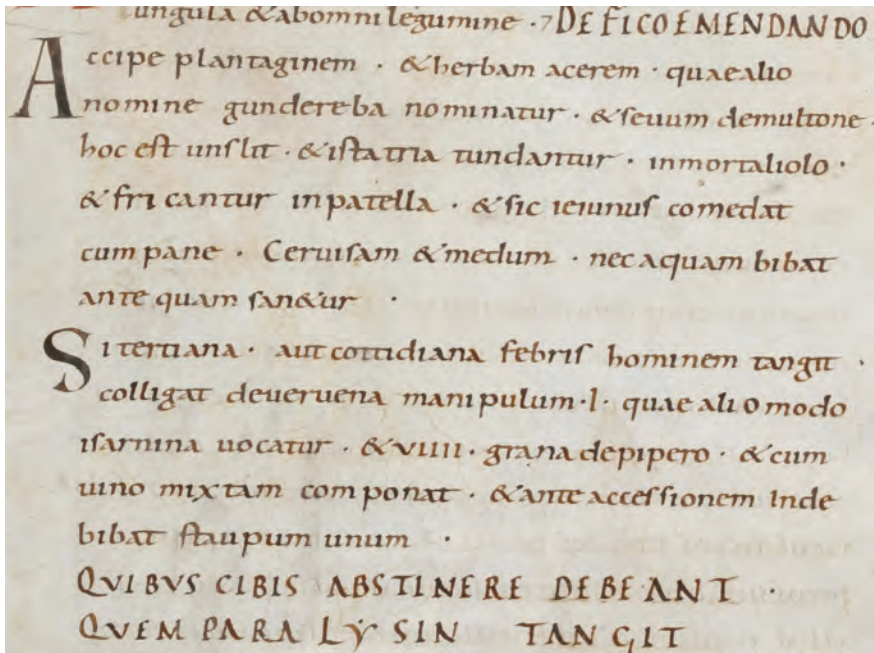 ungula & abomni legumine · 7 DE FICO EMENDANDO
Accipe plantaginem · & herbam acerem · quae alio
nomine gundereba nominatur · & seuum demultone ·
hoc est unslit · & ista tria tundantur · inmortaliolo ·
& fricantur inpatella · & sic ieiunus comedat
cum pane · Ceruisam & medum · nec aquam bibat
ante quam san&ur ·
Si tertiana · aut cottidiana febris hominem tangit ·
colligat deueruena manipulum · l · quae alio modo
isarnina uocatur · & viiii · grana depipero · & cum
uino mixtam componat · & ante accessionem Inde
bibat staupum unum ·
QVIBVS CIBIS ABSTINERE DEBEANT ·
QVEM PARALYSIN TANGIT